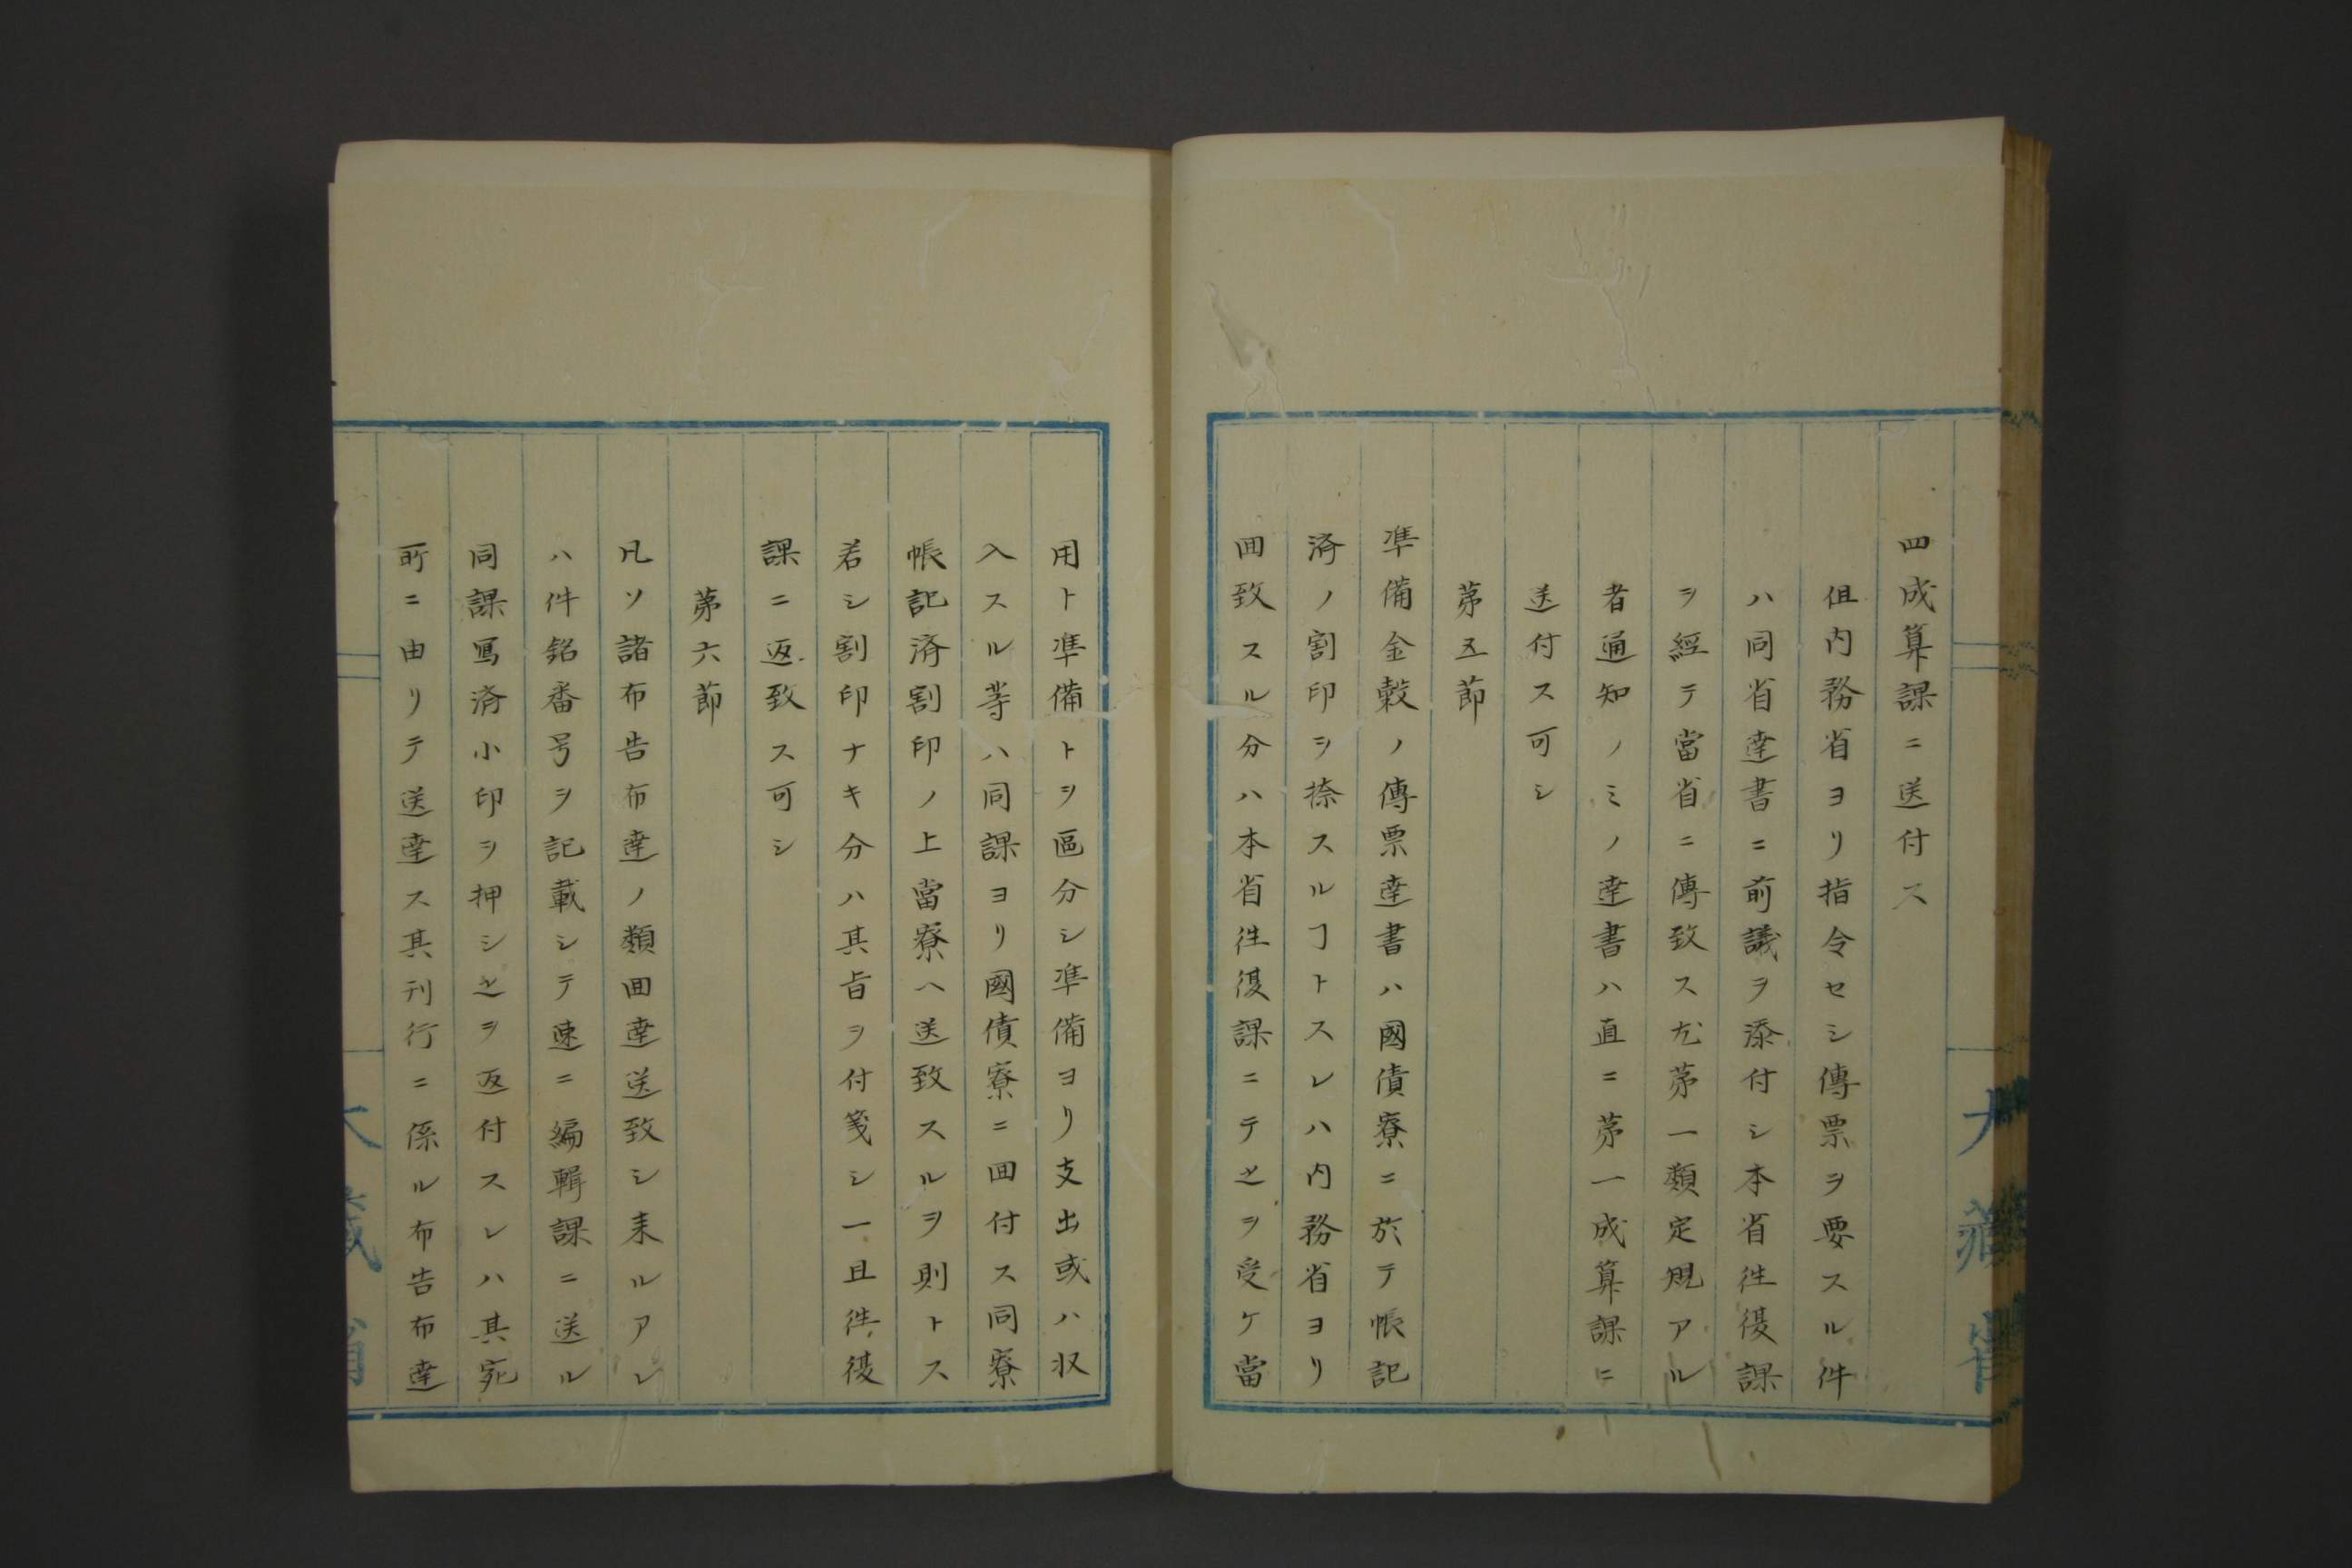 四成算課ニ送付ス
但内務省ヨリ指令セシ傳票ヲ要スル件
ハ同省達書ニ前議ヲ添付シ本省往復課
ヲ經テ當省ニ傳致ス尤第一類定規アル
者通知ノミノ達書ハ直ニ第一成算課ニ
送付ス可シ
第五節
準備金穀ノ傳票達書ハ國債寮ニ於テ帳記
済ノ割印ヲ捺スルヿトスレハ内務省ヨリ
回致スル分ハ本省往復課ニテ之ヲ受ケ當
用ト準備トヲ區分シ準備ヨリ支出或ハ収
入スル等ハ同課ヨリ國債寮ニ回付ス同寮
帳記済割印ノ上當寮ヘ送致スルヲ則トス
若シ割印ナキ分ハ其旨ヲ付箋シ一旦往復
課ニ返致ス可シ
第六節
凡ソ諸布告布達ノ類回達送致シ来ルアレ
ハ件銘番号ヲ記載シテ速ニ編輯課ニ送ル
同課寫済小印ヲ押シ之ヲ返付スレハ其宛
所ニ由リテ送達ス其刊行ニ係ル布告布達
大藏省
大藏省